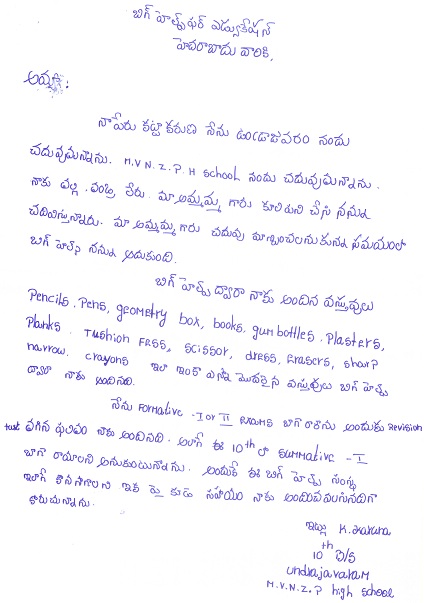 బిగ్ హెల్ప్ ఫర్ ఎడ్యుకేషన్
హైదరాబాదు వారికి,
అయ్యా:
నా పేరు కట్టా కరుణ నేను ఉండ్రాజవరం నందు
చదువుచున్నాను. M.V.N.Z.P.H school నందు చదువుచున్నాను.
నాకు తల్లి, తండ్రి లేరు. మా అమ్మమ్మ గారు కూలిపని చేసి నన్ను
చదివిస్తున్నారు. మా అమ్మమ్మ గారు చదువు మాన్పించాలనుకున్న సమయంలో
బిగ్ హెల్ప్ నన్ను ఆదుకుంది.
బిగ్ హెల్ప్ ద్వారా నాకు అందిన వస్తువులు
Pencils, Pens, geometry box, books, gumbottles, Plasters,
Planks, Tushion Fess, scissor, dress, Erasers, sharp
narrow, crayons ఇలా ఇంకా ఎన్నో మొదలైన వస్తువులు బిగ్ హెల్ప్
ద్వారా నాకు అందినవి.
నేను Formative - I or II exams బాగా రాశాను అందుకు Revision
test తగిన ఫలితం నాకు అందినది. అలాగే ఈ 10th లో summative - I
బాగా రాయాలని అనుకుంటున్నాను. అందుకే ఈ బిగ్ హెల్ప్ సంస్థ
ఇలాగే కొనసాగాలని ఇక పై కూడా సహాయం నాకు అందించవలసినదిగా
కోరుచున్నాను.
ఇట్లు K. Karuna
10th D/S
undrajavaram
M.V.N.Z.P high school